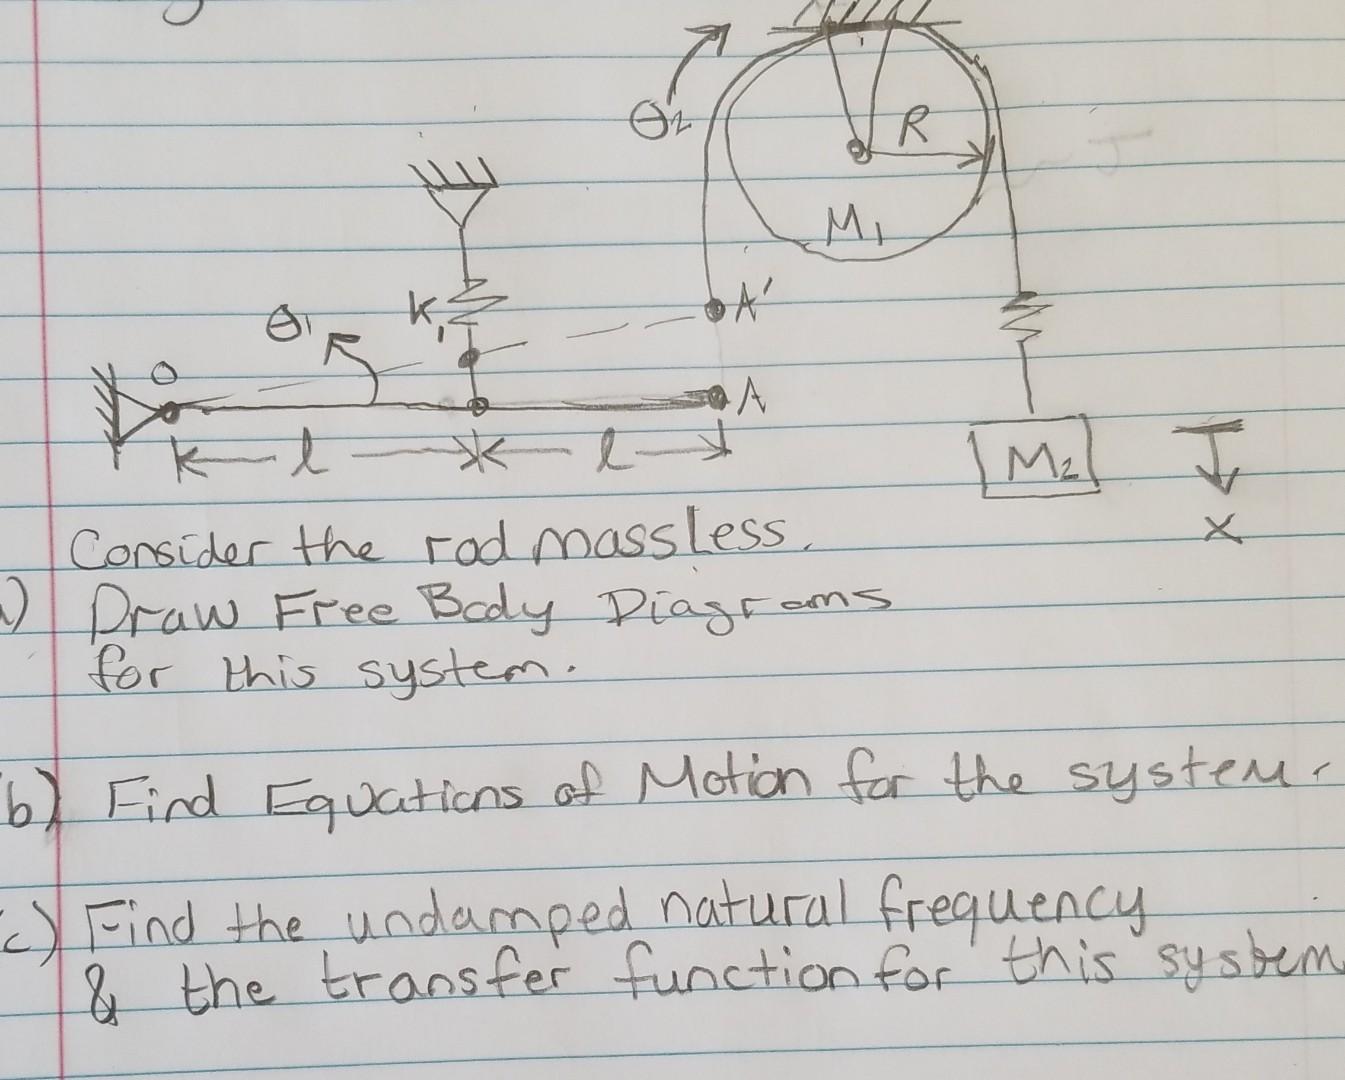 θ2
R
M1
K1
A'
θ1
O
A
l
l
M2
x
Consider the rod massless.
Draw Free Body Diagrams
for this system.
b) Find Equations of Motion for the system.
c) Find the undamped natural frequency
& the transfer function for this system